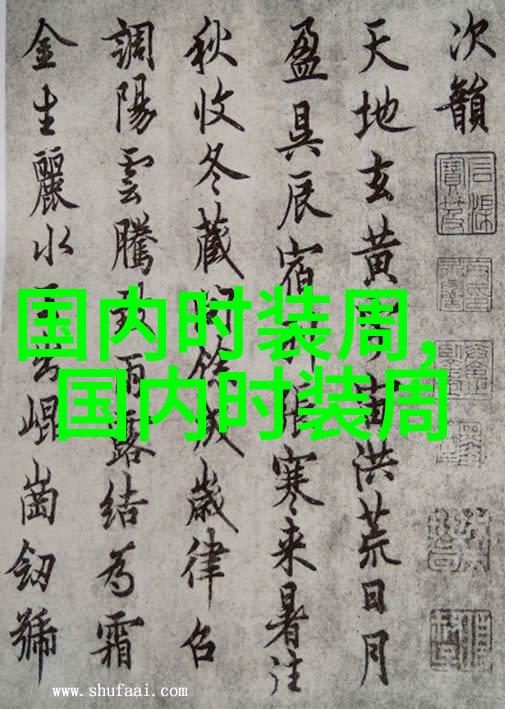 次韻
天地玄黄宙洪荒日月
盈昃辰宿張寒来暑往
秋收冬藏閏餘成歲律召
調陽雲騰致雨露結為霜
金生麗水玉出崐崗劒號
国内时装周,
国内时装周
www.shufaai.com